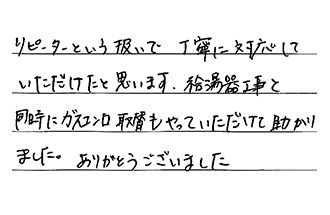 リピーターという扱いで 丁寧に対応して
いただけたと思います。給湯器工事と
同時にガスコンロ取替もやっていただけて助かり
ました。ありがとうございました